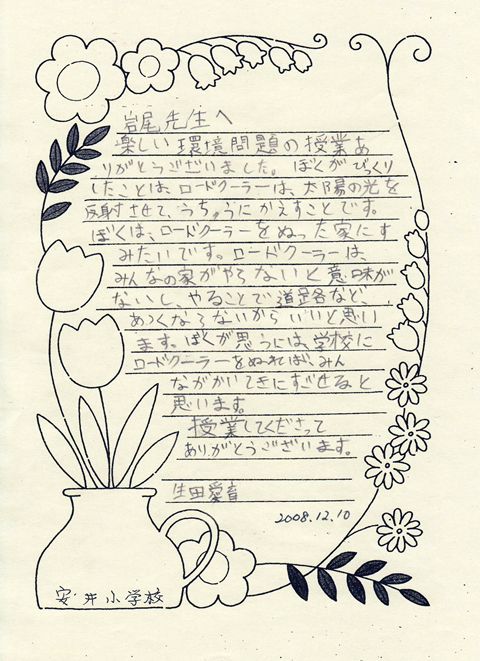 岩尾先生へ
楽しい環境問題の授業あ
りがとうございました。ぼくがびっくり
したことは、ロードクーラーは、太陽の光を
反射させて、うちゅうにかえすことです。
ぼくは、ロードクーラーをぬった家にす
みたいです。ロードクーラーは、
みんなの家がやらないと意味が
ないし、やることで道路など、
あつくならないからいいと思い
ます。ぼくが思うには、学校に
ロードクーラーをぬれば、みん
ながかいてきにすごせると
思います。
授業してくださって
ありがとうございます。
生田愛
2008.12.10
安井小学校